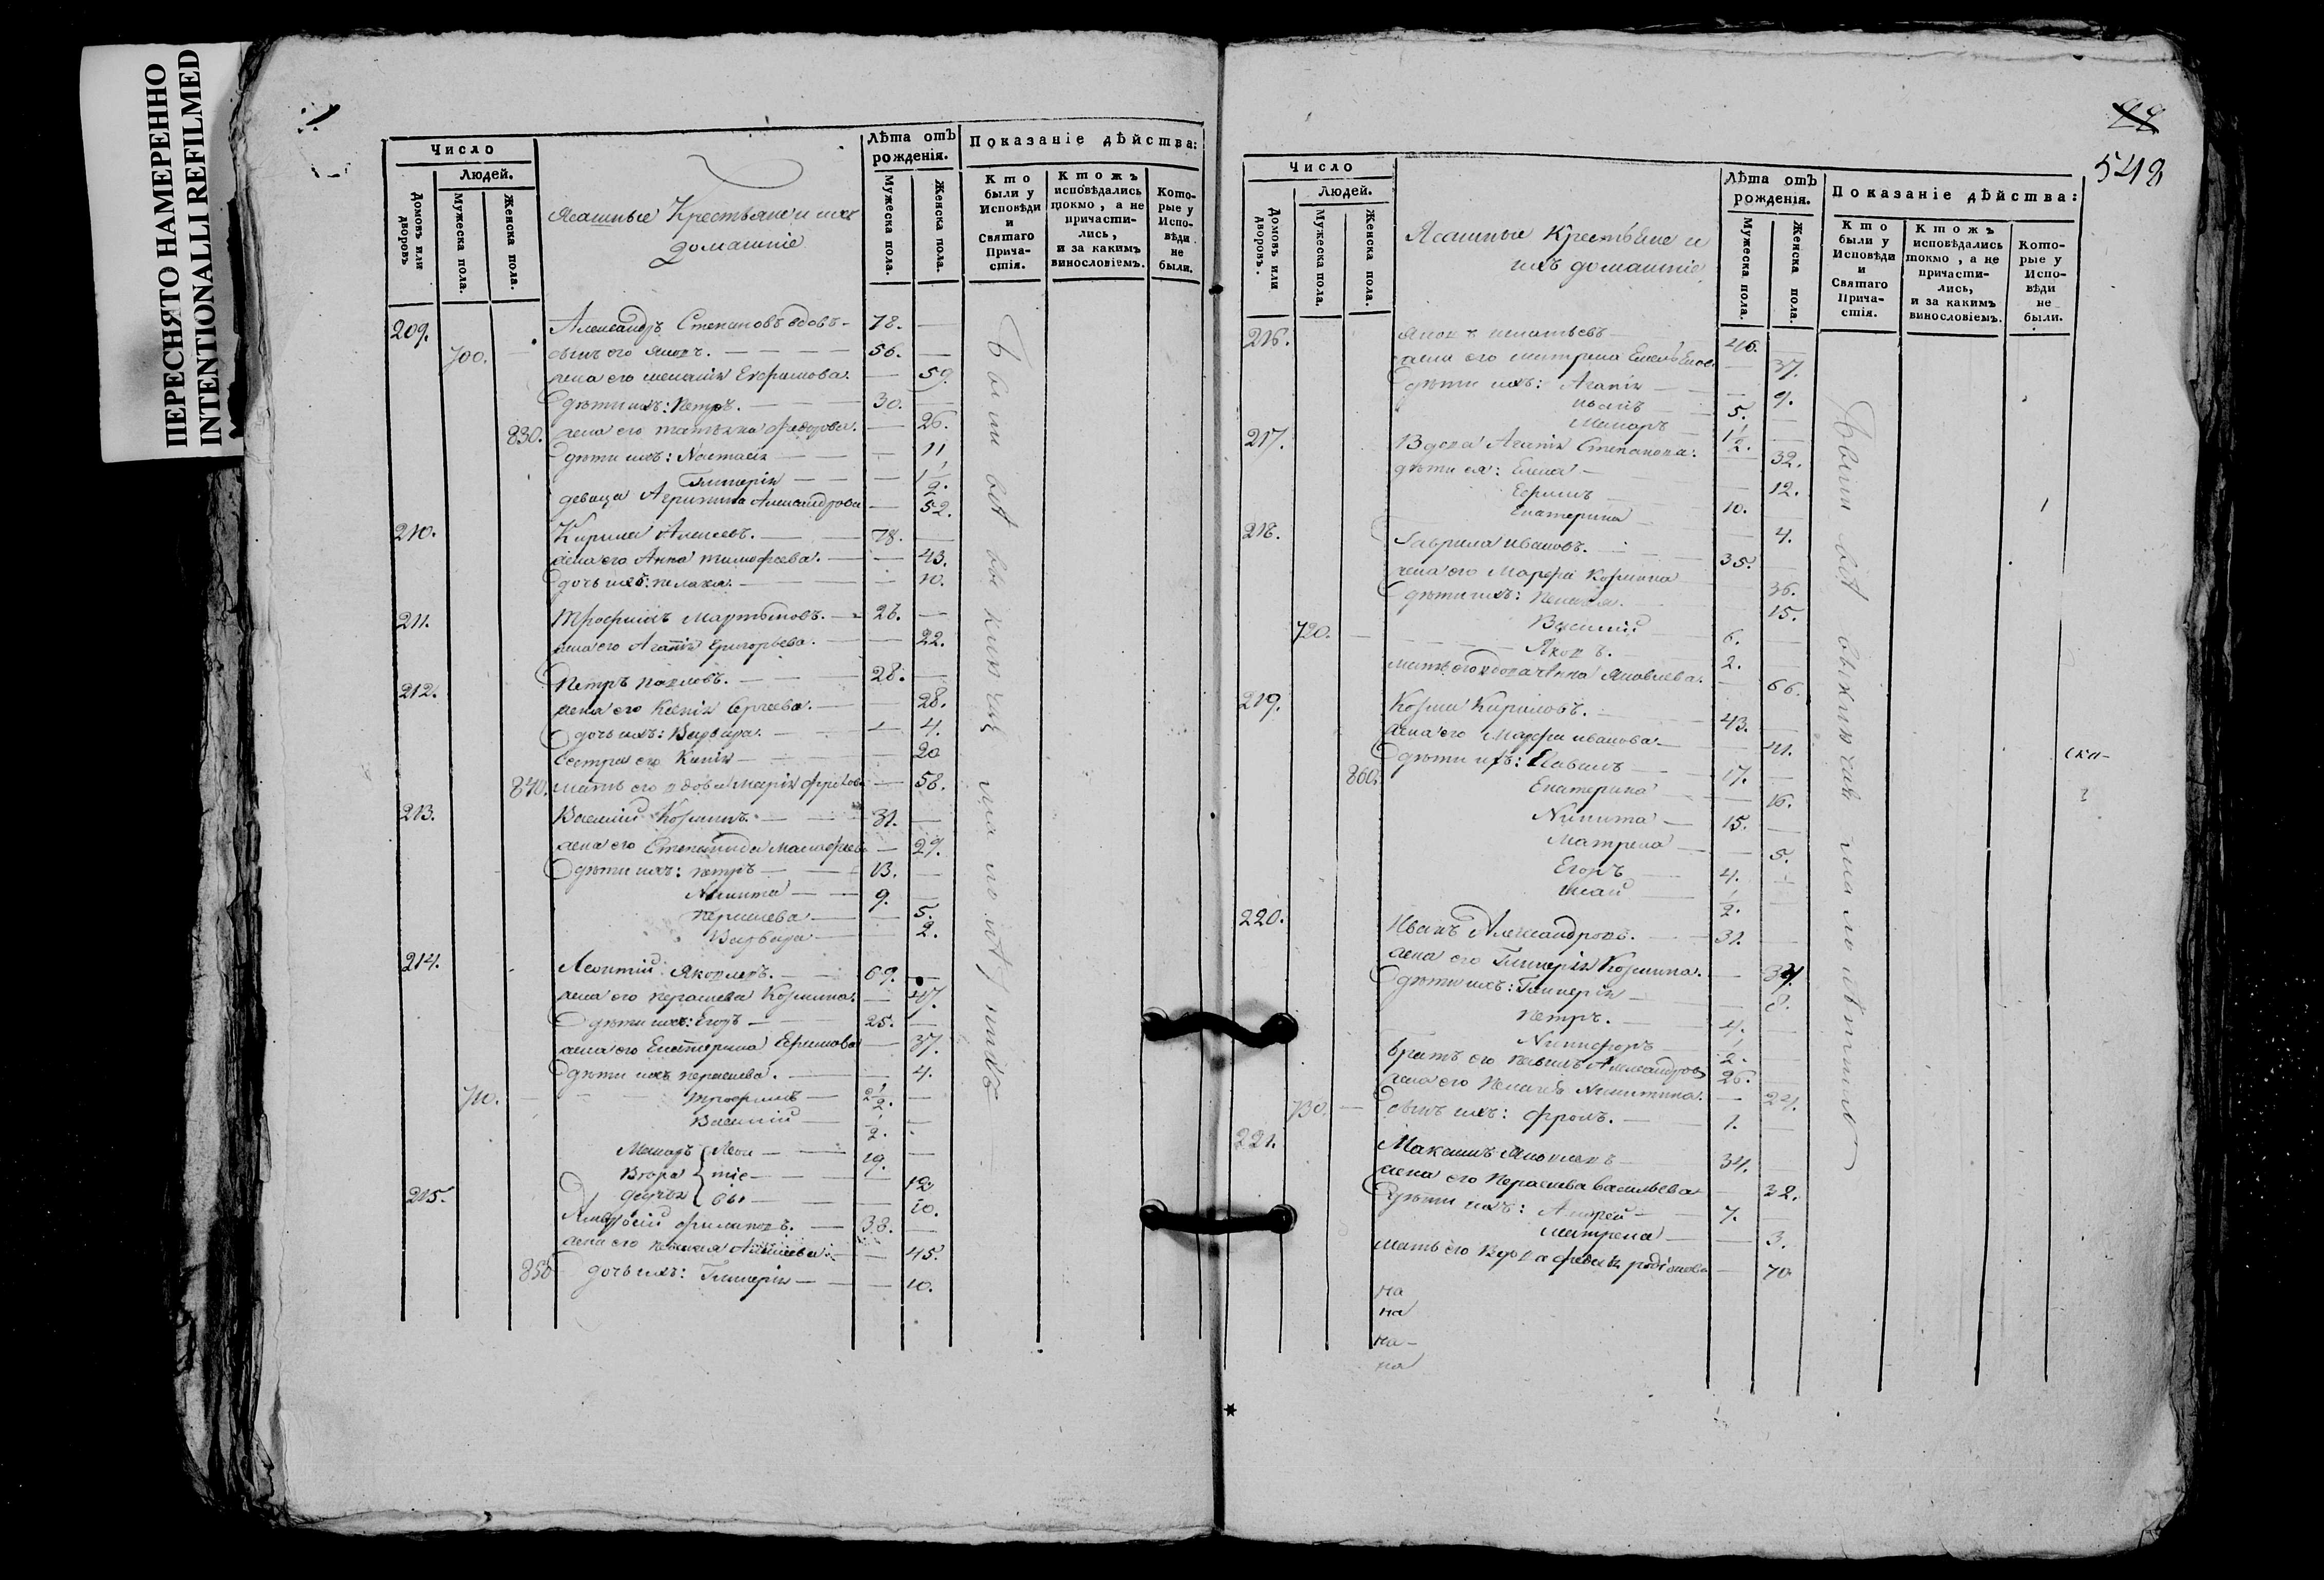 ПЕРЕСНЯТО НАМЕРЕННО
INTENTIONALLI REFILMED
Число
Людей.
Домовъ или дворовъ
Мужеска пола.
Женска пола.
Ясашные Крестьяне и ихъ
домашніе
Лѣта отъ рожденія.
Мужеска пола.
Женска пола.
Показаніе дѣйства:
Кто были у Исповѣди и Святаго Прича-стія.
Ктожъ исповѣдались токмо, а не причасти-лись, и за какимъ винословіемъ.
Кото-рые у Испо-вѣди не были.
209. Александръ Степановъ вдовъ – 78.
700. – сынъ его Яковъ. – 56.
жена его Ефимова. – 59.
дѣти ихъ: Петръ. – 30.
830. жена его Татьяна Федорова. – 26.
дѣти ихъ: Настасія – 11
Гликерія – 1/2.
девица Агрипина Александрова – 52.
210. Кирила Алексеевъ. – 78.
жена его Анна Тимофеева. – 43.
дочь ихъ: Пелагея. – 10.
211. Трофимъ Мартыновъ. – 26.
жена его Агапія Григорьева. – 22.
212. Петръ Павловъ. – 28.
жена его Ксенія Сергеева. – 28.
дочь ихъ: Варвара. – 4.
Сестра его – 20
840. мать его вдова Марія – 58.
213. Василій Козминъ. – 31.
жена его Степанида – 29.
дѣти ихъ: Петръ – 13.
Никита – 9.
Парасковья – 5.
Варвара – 2.
214. Леонтій Яковлевъ. – 69.
жена его Парасковья Козмина. – 47.
дѣти ихъ: Егоръ – 25.
жена его Екатерина Ефимова – 37.
дѣти ихъ – 4.
710. – Трофимъ – 2 1/2.
Василій – 1/2.
Макаръ – 19.
– 12
– 10.
215. Амвросій Филиповъ. – 38.
жена его Пелагея Алексеева. – 45.
850 дочь ихъ: Гликерія – 10.
Были всѣ выключая малолѣтнихъ
548
Число
Людей.
Домовъ или дворовъ.
Мужеска пола.
Женска пола.
Ясашные Крестьяне и
ихъ домашніе
Лѣта отъ рожденія.
Мужеска пола.
Женска пола.
Показаніе дѣйства:
Кто были у Исповѣди и Святаго Прича-стія.
Ктожъ исповѣдались токмо, а не причасти-лись, и за какимъ винословіемъ.
Кото-рые у Испо-вѣди не были.
216. Яковъ Игнатьевъ – 46.
жена его Матрена – 37.
дѣти ихъ: Агапія – 9.
Иванъ – 5.
Макаръ – 1 1/2.
217. Вдова Агапія Степанова: 32.
дѣти ея: Елена – 12.
Ефимъ – 10.
Екатерина – 4.
218. Гаврила Ивановъ. – 35.
жена его Марфа Козмина – 36.
дѣти ихъ: Пелагея. – 15.
720. – Василій – 6.
Яковъ. – 2.
мать его вдова Анна Яковлева. – 66.
219. Козма Кириловъ. – 43.
жена его Марфа Иванова. – 41.
дѣти ихъ: Павелъ – 17.
860. Екатерина – 16.
Никита – 15.
Матрена – 5.
Егоръ – 4.
– 1/2.
220. Иванъ Александровъ. – 31.
жена его Гликерія Козмина. – 34.
дѣти ихъ: Гликерія – 8.
Петръ. – 4.
Никифоръ – 1/2.
братъ его Павелъ Александровъ 26.
жена его Пелагея Никитина. – 24.
730. – сынъ ихъ: Фролъ. – 1.
221. Максимъ Яковлевъ – 34.
жена его Парасковья Васильева – 32.
дѣти ихъ: Андрей – 7.
Матрена – 3.
мать его Вдова Родіонова – 70
на
на
на –
на
Были всѣ выключая малолѣтнихъ